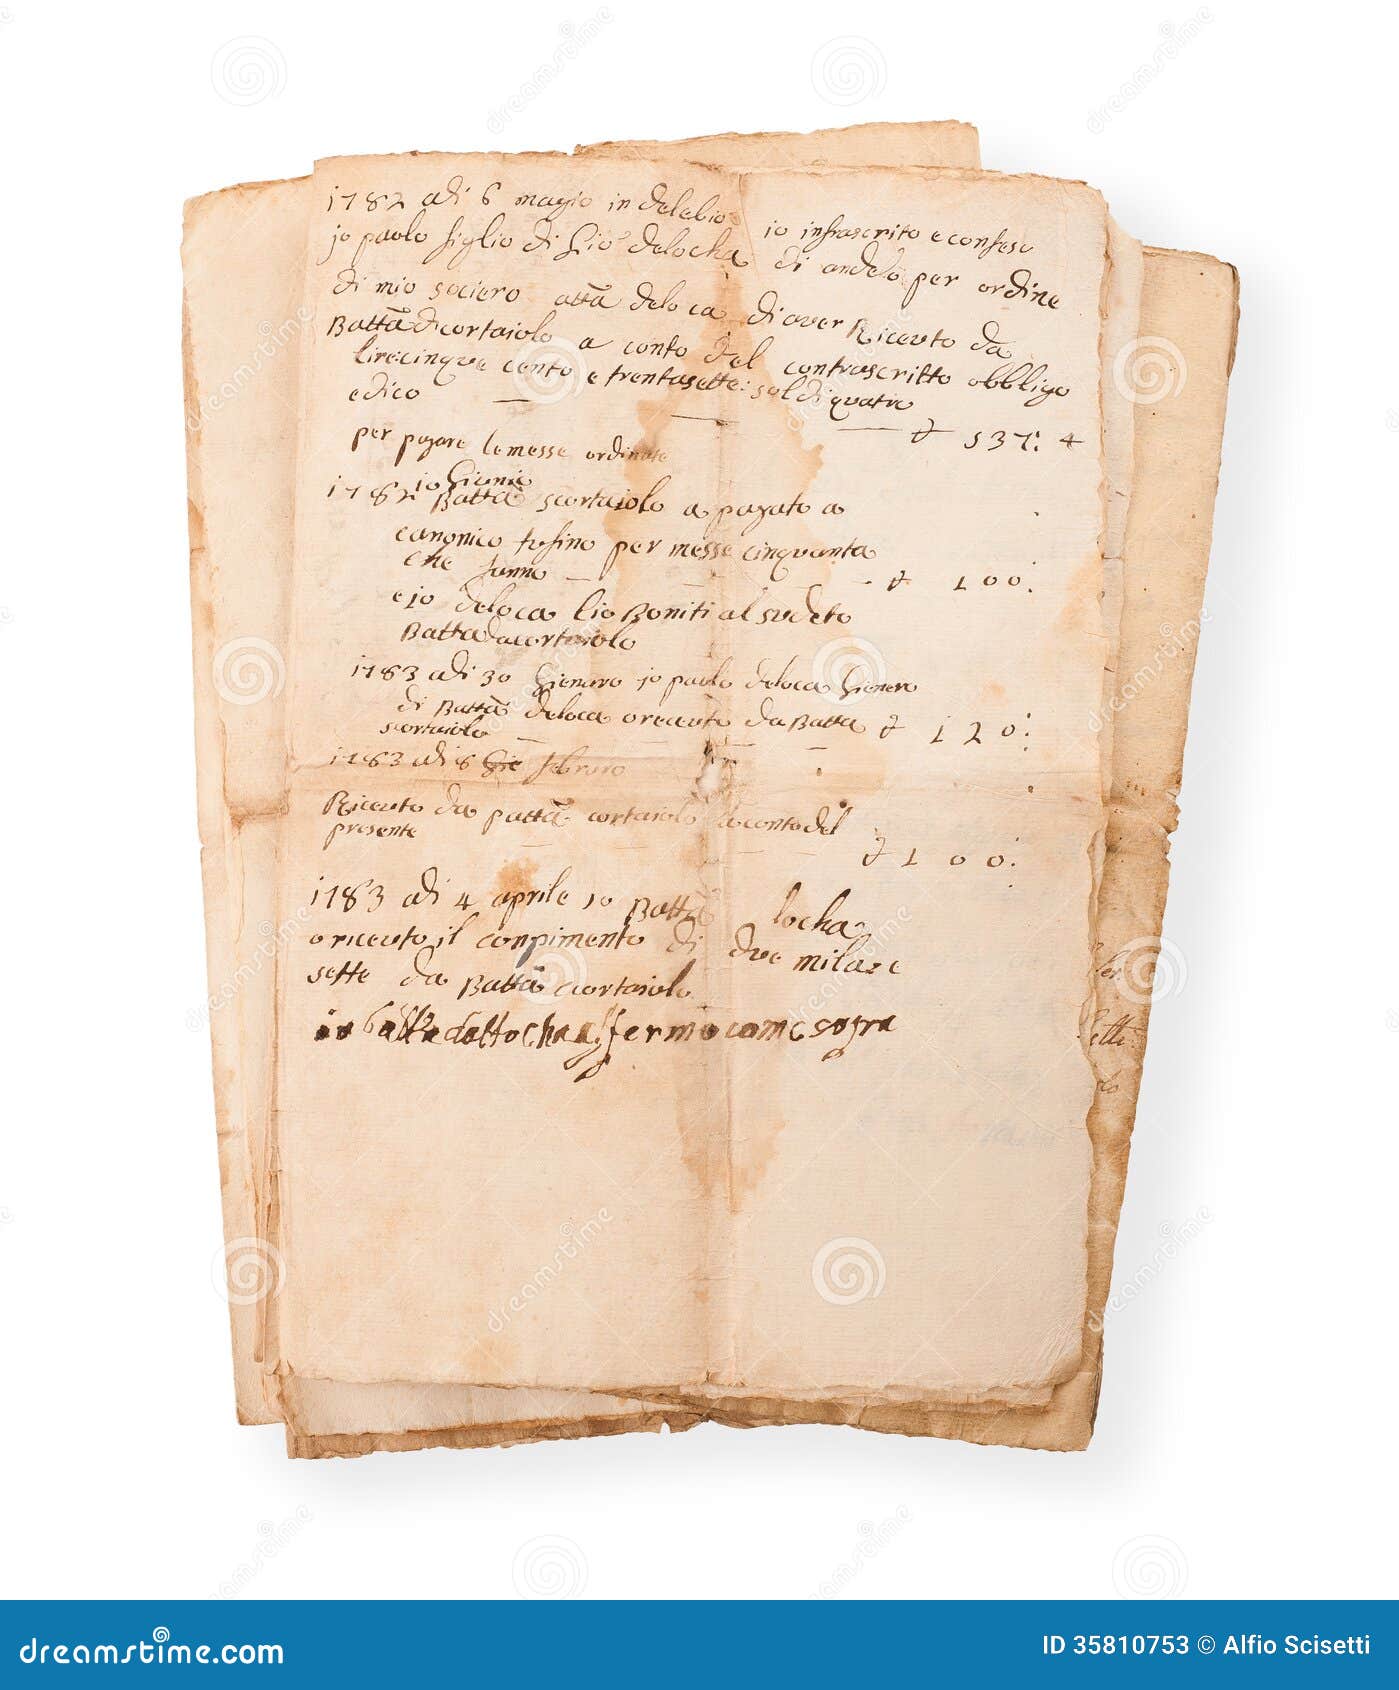 1782 adi 6 magio in delebio io infrascrito e confeso
jo paolo figlio di Gio delocha di andelo per ordine
di mio sociero atta deloca di aver Ricevto da
Batta di cortaiolo a conto del contrascritto obbligo
lire: cinqve cento e trentasette: soldi qvatro
e dico 537: 4
per pagare le messe ordinate
io Gionio
1782 Batta scortaiolo a pagato a
canonico per messe cinqvanta
che fanno 100:
e jo deloca lio Boniti al svdeto
Batta dacortaiolo
1783 adi 30 Gienaro jo paolo deloca Gienero
di Batta deloca o recevto da Batta 120:
scortaiolo
1783 adi 6 febraro
Ricevto da patta cortaiolo a conto del
presente
100:
1783 adi 4 aprile io Batta locha
o ricevto il conpimento di dve mila e
sette da Batta cortaiolo
io come sopra
dreamstime
dreamstime.com
ID 35810753 © Alfio Scisetti